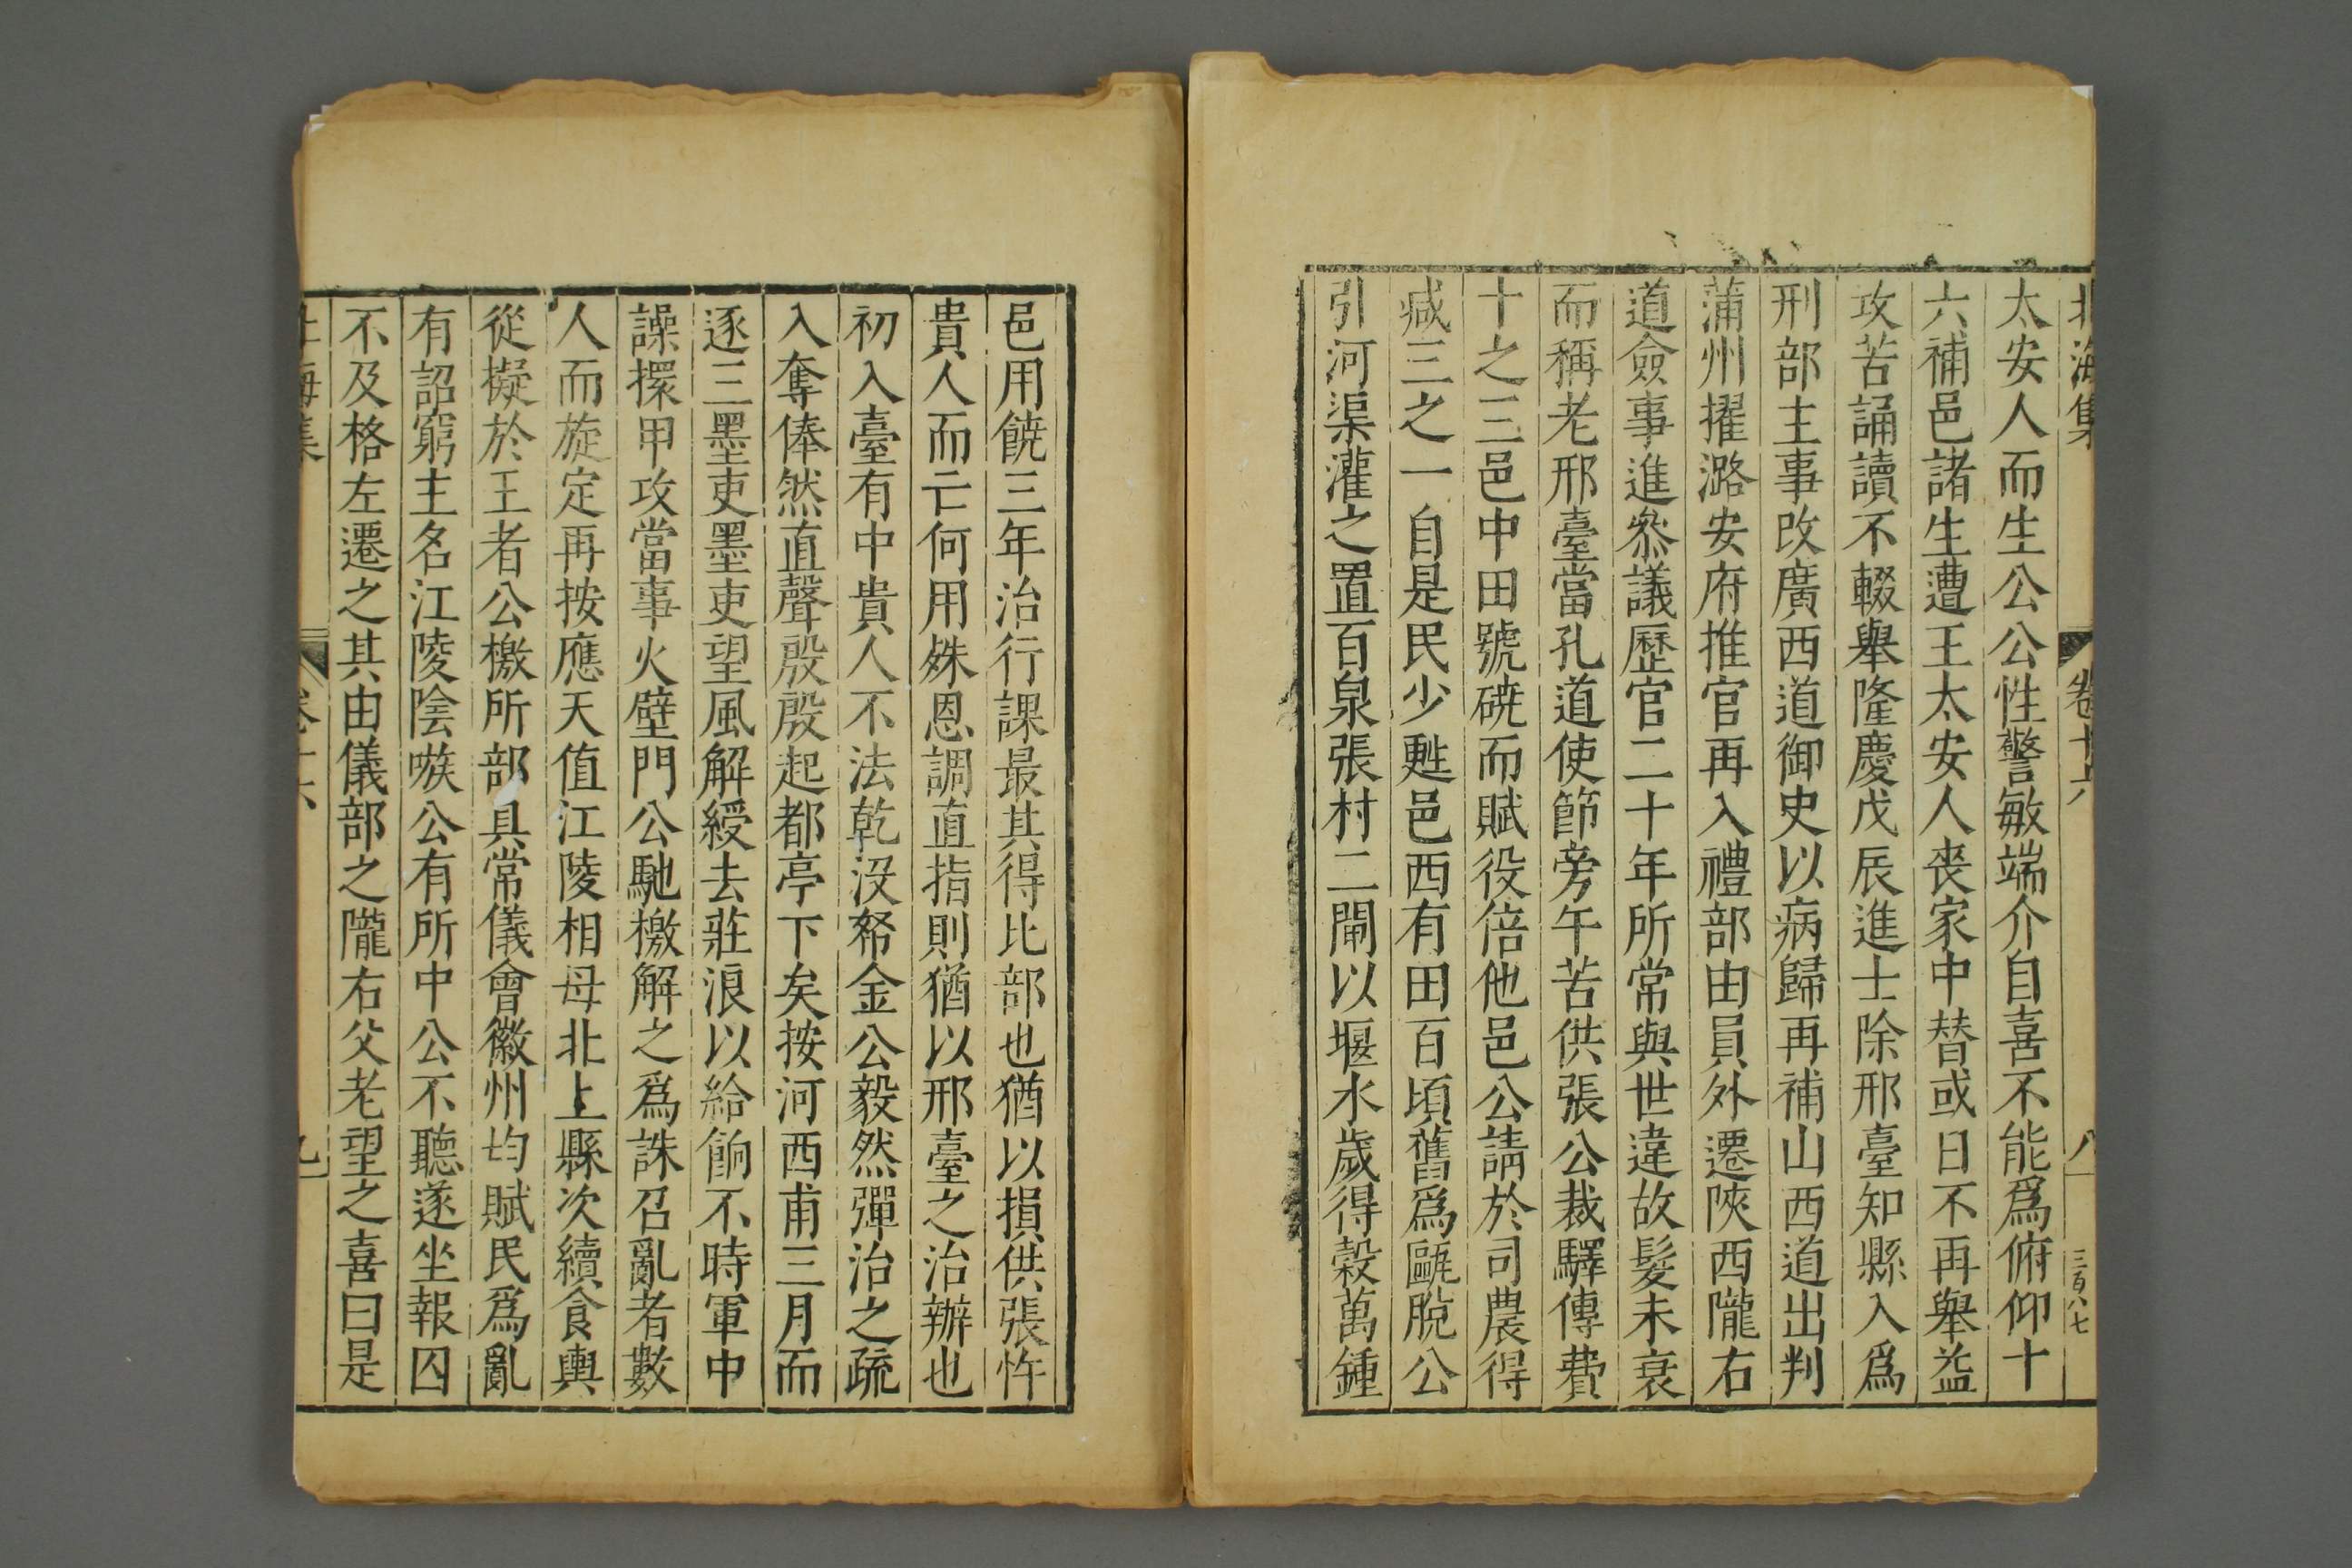 北海集 卷十六 八 三百八七
太安人而生公公性警敏端介自喜不能爲俯仰十
六補邑諸生遭王太安人喪家中替或日不再舉益
攻苦誦讀不輟舉隆慶戊辰進士除邢臺知縣入爲
刑部主事改廣西道御史以病歸再補山西道出判
蒲州擢潞安府推官再入禮部由員外遷陝西隴右
道僉事進叅議歷官二十年所常與世違故髮未衰
而稱老邢臺當孔道使節旁午苦供張公裁驛傳費
十之三邑中田號磽而賦役倍他邑公請於司農得
減三之一自是民少甦邑西有田百頃舊爲甌脫公
引河渠灌之置百泉張村二閘以堰水歲得穀萬鍾
邑用饒三年治行課最其得比部也猶以損供張忤
貴人而亡何用殊恩調直指則猶以邢臺之治辦也
初入臺有中貴人不法乾沒帑金公毅然彈治之疏
入奪俸然直聲殷殷起都亭下矣按河西甫三月而
逐三墨吏墨吏望風解綬去莊浪以給餉不時軍中
譟擐甲攻當事火壁門公馳檄解之爲誅召亂者數
人而旋定再按應天值江陵相母北上縣次續食輿
從擬於王者公檄所部具常儀會徽州均賦民爲亂
有詔窮主名江陵陰嗾公有所中公不聽遂坐報囚
不及格左遷之其由儀部之隴右父老望之喜曰是
北海集 卷十六 九